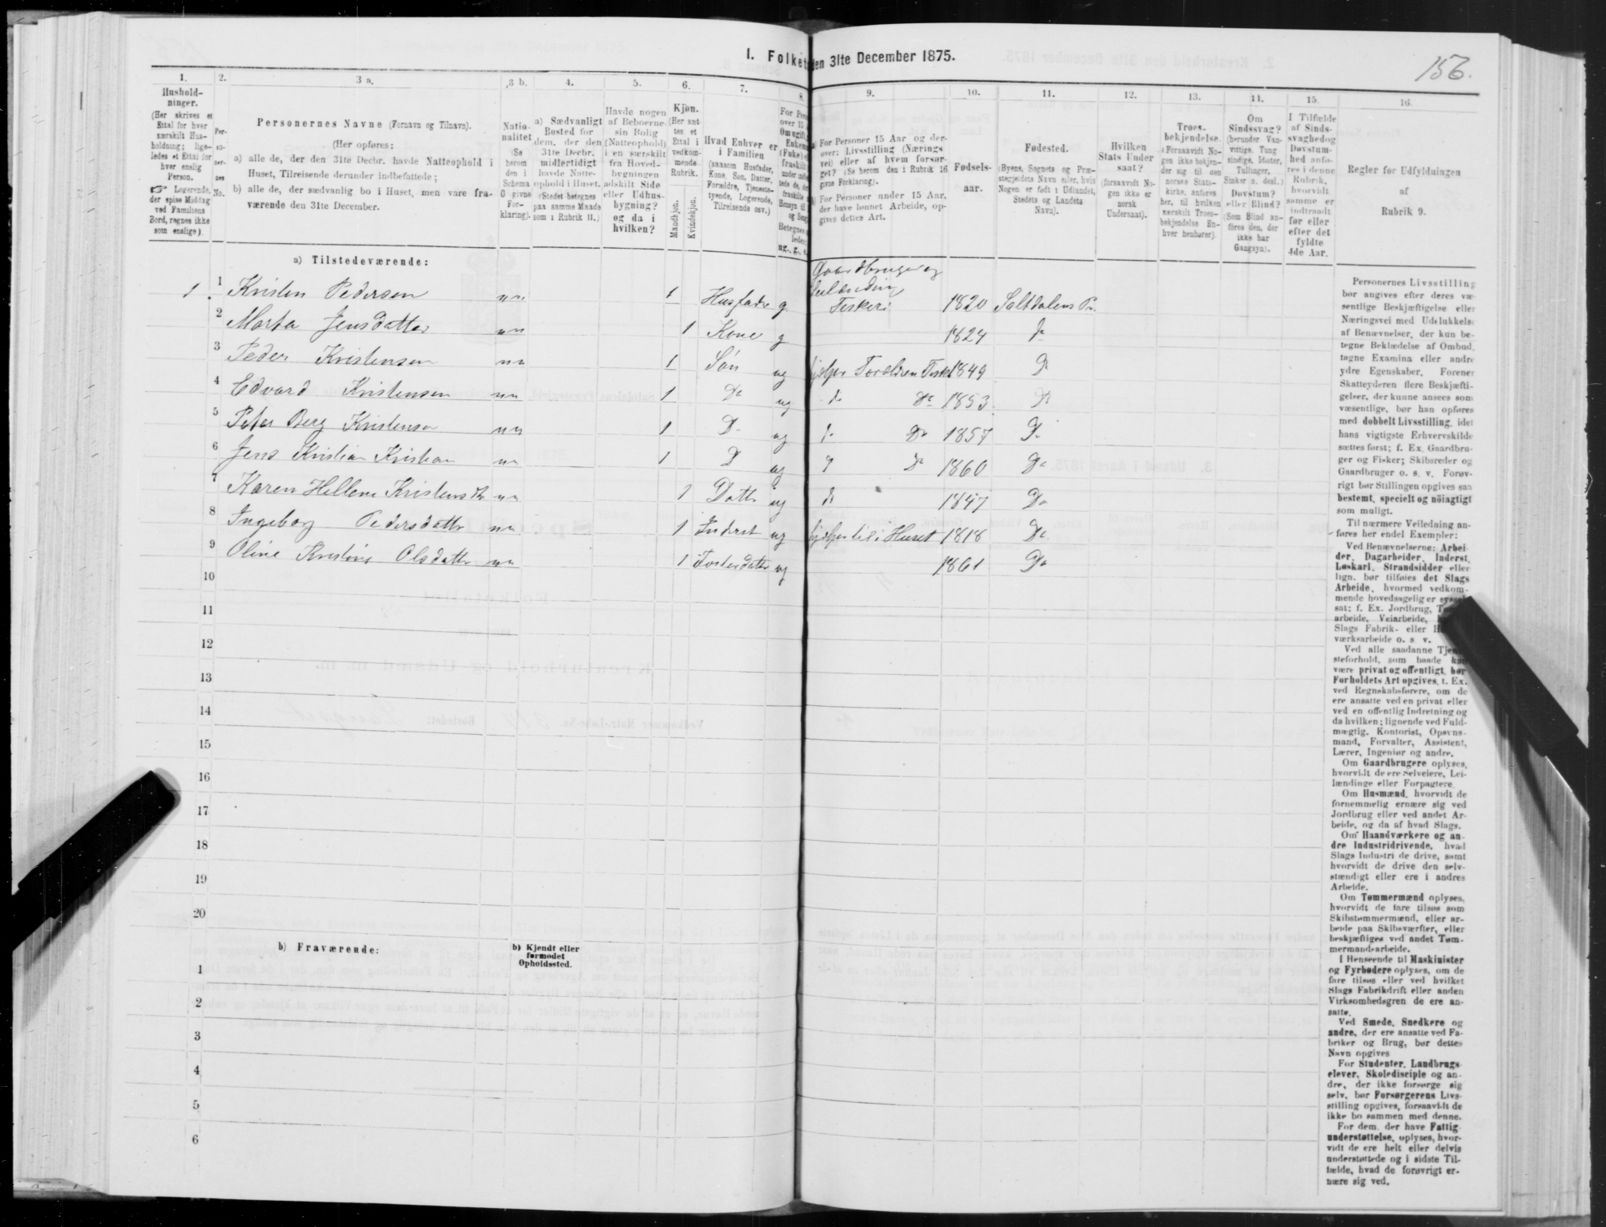 I. Folket
en 31te December 1875.
156.
1. 2. 3 a. 3 b. 4. 5. 6. 7. 8. 9. 10. 11. 12. 13. 14. 15. 16.
Hushold-
ninger.
(Her skrives et
Ettal for hver
særskilt Hus-
holdning; lige-
ledes et Ettal for
hver enslig
Person.
☞ Logerende,
der spise Middag
ved Familiens
Bord, regnes ikke
som enslige).
Per-
so-
ner-
nes
No.
Personernes Navne (Fornavn og Tilnavn).
(Her opføres:
a) alle de, der den 31te Decbr. havde Natteophold i
Huset, Tilreisende derunder indbefattede;
b) alle de, der sædvanlig bo i Huset, men vare fra-
værende den 31te December.
Natio-
nalitet
(Se
herom
den i
Schema
0 givne
For-
klaring).
a) Sædvanligt
Bosted for
dem, der den
31te Decbr.
midlertidigt
havde Natte-
ophold i Huset.
(Stedet betegnes
paa samme Maade
som i Rubrik 11.)
Havde nogen
af Beboerne
sin Bolig
(Natteophold)
i en særskilt
fra Hoved-
bygningen
adskilt Side
eller Udhus-
bygning?
og da i
hvilken?
Kjøn.
(Her sæt-
tes et
Ettal i
vedkom-
mende
Rubrik.
Mandkjøn.
Kvindekjøn.
Hvad Enhver er
i Familien
(saasom Husfader,
Kone, Søn, Datter,
Forældre, Tjeneste-
tyende, Logerende,
Tilreisende osv.)
For Personer 15 Aar og der-
over: Livsstilling (Nærings
vei) eller af hvem forsør-
get? (Se herom den i Rubrik 16
givne Forklaring).
For Personer under 15 Aar,
der have lønnet Arbeide, op-
gives dettes Art.
Fødsels-
aar.
Fødested.
(Byens, Sognets og Præ-
stegjeldets Navn eller, hvis
Nogen er født i Udlandet,
Stedets og Landets
Navn).
Hvilken
Stats Under
saat?
(forsaavidt No-
gen ikke er
norsk
Undersaat).
Troes-
bekjendelse.
(Forsaavidt No-
gen ikke bekjen-
der sig til den
norske Stats-
kirke, anføres
her, til hvilken
særskilt Troes-
bekjendelse En-
hver henhører).
Om
Sindssvag?
(herunder Van-
vittige, Tung
sindige, Idioter,
Tullinger,
Sinker o. desl.)
Døvstum?
eller Blind?
(Som Blind an-
føres den, der
ikke har
Gangsyn).
I Tilfælde
af Sinds-
svaghed og
Døvstum-
hed anfø-
res i denne
Rubrik,
hvorvidt
samme er
indtraadt
før eller
efter det
fyldte
4de Aar.
Regler for Udfyldningen
af
Rubrik 9.
a) Tilstedeværende:
Gaardbruger og
1 1 Kristen Pedersen nn 1 Husfader g Fiskeri 1820 Saltdalens Pr.
2 Marta Jensdatter nn 1 Kone g 1824 Do
3 Peder Kristensen nn 1 Søn ug hjelper Forældren Fisker 1849 Do
4 Edvard Kristensen nn 1 Do ug do Do 1853 Do
5 Peter Berg Kristensen nn 1 D. ug do Do 1857 Do
6 Jens Kristian Kristian nn 1 D ug Do 1860 Do
7 Karen Hellene Kristensdtr nn 1 Datter ug do 1847 Do
8 Ingeborg Pedersdatter nn 1 Inderst ug hjelper til i Huset 1818 Do
9 Oline Kristine Olsdatter nn 1 Fosterdatter ug 1861 Do
10
11
12
13
14
15
16
17
18
19
20
b) Fraværende:
b) Kjendt eller
formodet
Opholdssted.
1
2
3
4
5
6
Personernes Livsstilling
bør angives efter deres væ-
sentlige Beskjæftigelse eller
Næringsvei med Udelukkelse
af Benævnelser, der kun be-
tegne Beklædelse af Ombud,
tagne Examina eller andre
ydre Egenskaber. Forener
Skatteyderen flere Beskjæfti-
gelser, der kunne ansees som
væsentlige, bør han opføres
med dobbelt Livsstilling, idet
hans vigtigste Erhvervskilde
sættes forst; f. Ex. Gaardbru-
ger og Fisker; Skibsreder og
Gaardbruger o. s. v. Forøv-
rigt bør Stillingen opgives saa
bestemt, specielt og nöiagtigt
som muligt.
Til nærmere Veiledning an-
føres her endel Exempler:
Ved Benævnelserne: Arbei-
der, Dagarbeider, Inderst,
Løskarl, Strandsidder eller
lign. bør tilføies det Slags
Arbeide, hvormed vedkom-
mende hovedsagelig er syssel-
sat; f. Ex. Jordbrug,
arbeide, Veiarbeide,
Slags Fabrik- eller
værksarbeide o. s. v.
Ved alle saadanne Tjene-
steforhold, som baade kan
være privat og offentligt, bør
Forholdets Art opgives, t. Ex.
ved Regnskabsførere, om de
ere ansatte ved en privat eller
ved en offentlig Indretning og
da hvilken; lignende ved Fuld-
mægtig, Kontorist, Opsyns-
mand, Forvalter, Assistent,
Lærer, Ingeniør og andre.
Om Gaardbrugere oplyses,
hvorvidt de ere Selveiere, Lei-
lændinge eller Forpagtere.
Om Husmænd, hvorvidt de
fornemmelig ernære sig ved
Jordbrug eller ved andet Ar-
beide, og da af hvad Slags.
Om Haandværkere og an-
dre Industridrivende, hvad
Slags Industri de drive, samt
hvorvidt de drive den selv-
stændigt eller ere i andres
Arbeide.
Om Tømmermænd oplyses,
hvorvidt de fare tilsøs som
Skibstømmermænd, eller ar-
beide paa Skibsværfter, eller
beskjæftiges ved andet Tøm-
mermandsarbeide.
I Henseende til Maskinister
og Fyrbødere oplyses, om de
fare tilsøs eller ved hvilket
Slags Fabrikdrift eller anden
Virksomhedsgren de ere an-
satte.
Ved Smede, Snedkere og
andre, der ere ansatte ved Fa-
briker og Brug, bør dettes
Navn opgives
For Studenter, Landbrugs-
elever, Skoledisciple og an-
dre, der ikke forsørge sig
selv, bør Forsørgerens Livs-
stilling opgives, forsaavidt de
ikke bo sammen med denne.
For dem, der have Fattig-
understøttelse, oplyses, hvor-
vidt de ere helt eller delvis
understøttede og i sidste Til-
fælde, hvad de forøvrigt er-
nære sig ved.